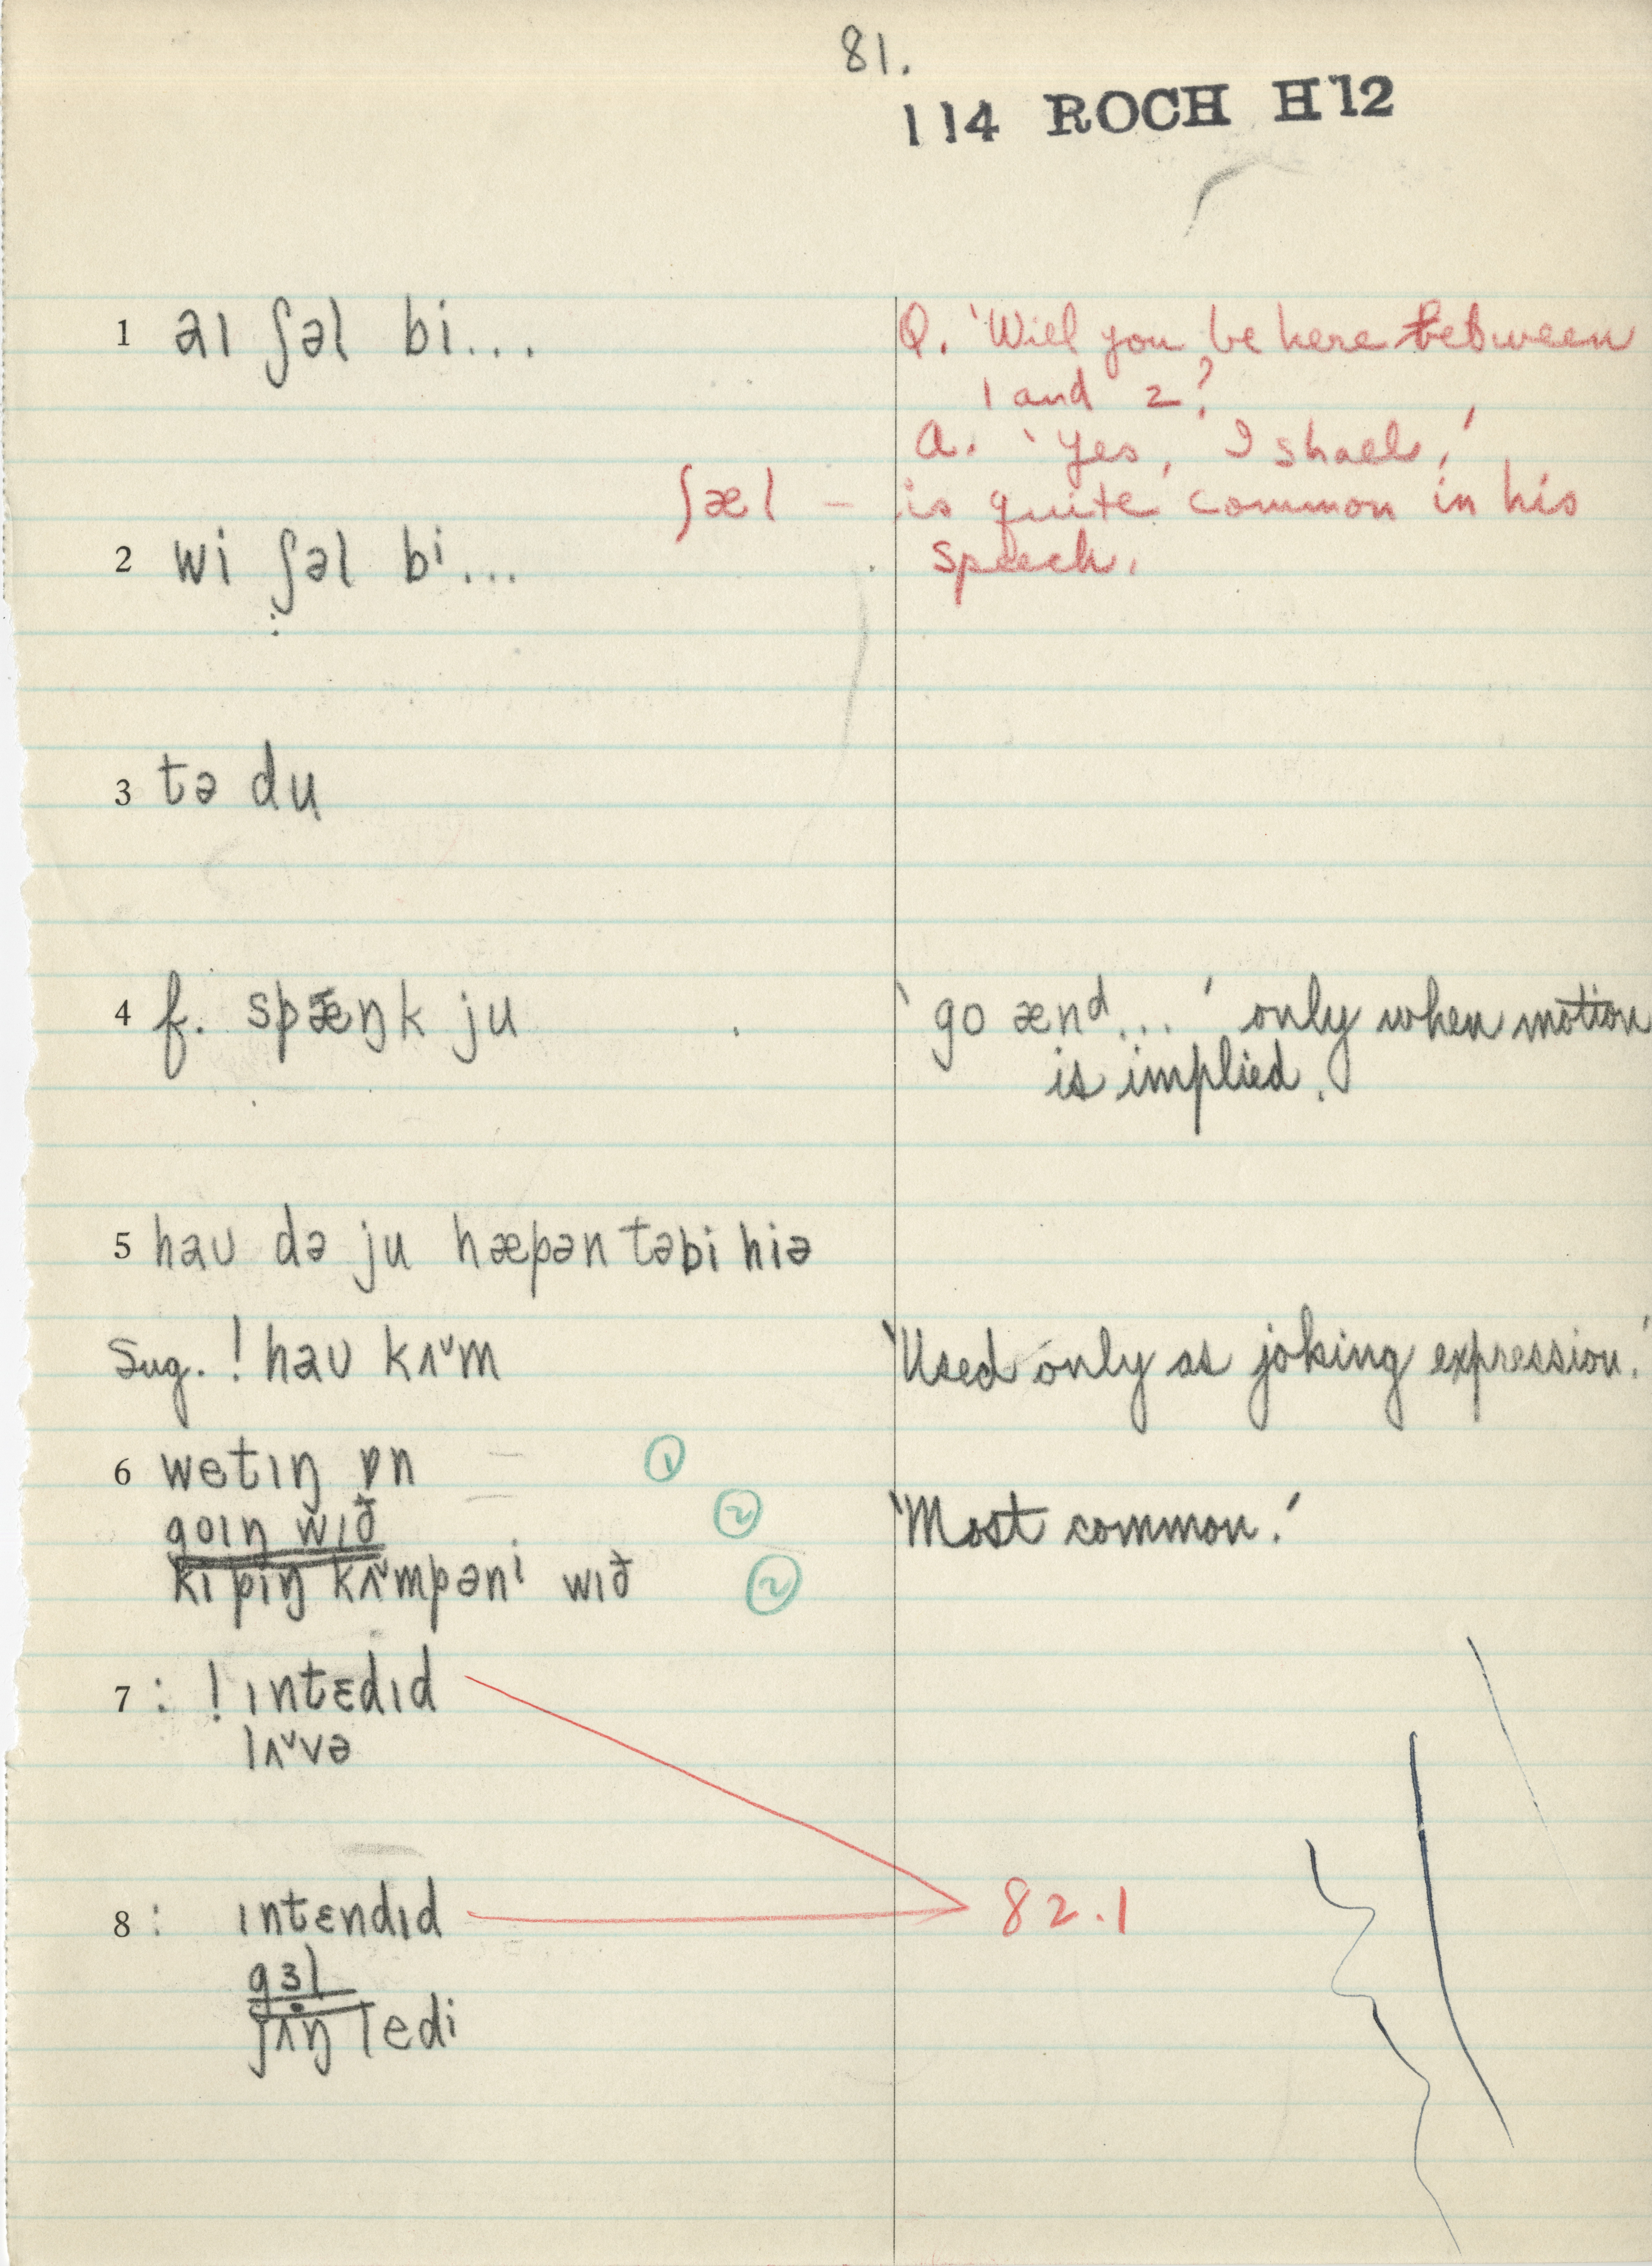 81.
114 ROCH H12
1 aɪ ʃəl bi...
Q. 'Will you be here between
1 and 2?
A. 'Yes, I shall,'
ʃæl – is quite common in his
speech.
2 wi ʃəl bi...
3 tə du
4 f. spæŋk ju
'go ænd...' only when motion
is implied.
5 haʊ də ju hæpən təbi hiə
Sug. ! haʊ kʌ˅m
'Used only as joking expression.'
6 wetɪŋ ɒn ①
goɪŋ wɪð ②
'Most common.'
kipɪŋ kʌ˅mpəni wɪð ②
7 : ! ɪntɛdɪd
lʌ˅və
8 : ɪntɛndɪd
82.1
gɜl
jʌŋ ledi